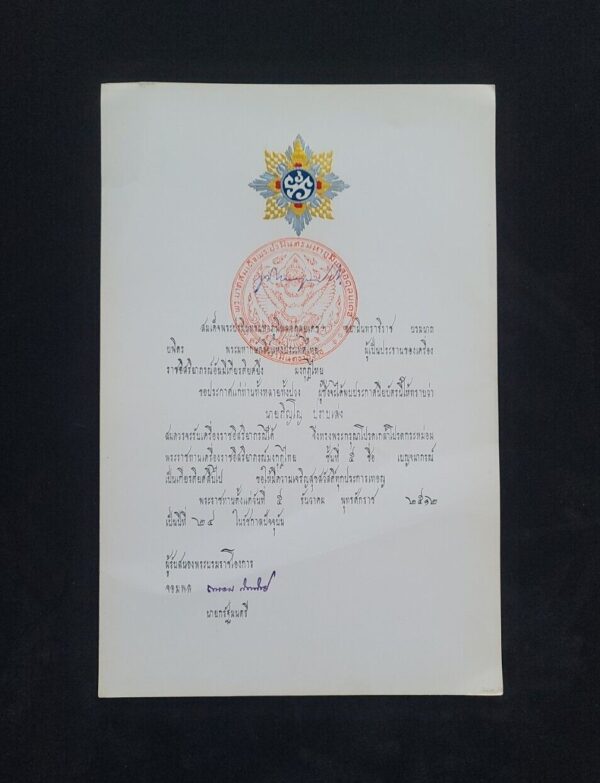 สมเด็จพระปรมินทรมหาภูมิพลอดุลยเดช ฯ สยามินทราธิราช บรมนาถ
บพิตร พระมหากษัตริย์แห่งประเทศไทย ผู้เป็นประธานของเครื่อง
ราชอิสริยาภรณ์อันมีเกียรติยศยิ่ง มงกุฎไทย
ขอประกาศแก่ท่านทั้งหลายทั้งปวง ผู้ซึ่งจะได้พบประกาศนียบัตรนี้ให้ทราบว่า
นายภิญโญ
สมควรจะรับเครื่องราชอิสริยาภรณ์ได้ จึงทรงพระกรุณาโปรดเกล้าโปรดกระหม่อม
พระราชทานเครื่องราชอิสริยาภรณ์มงกุฎไทย ชั้นที่ ๕ ชื่อ เบญจมาภรณ์
เป็นเกียรติยศสืบไป ขอให้มีความเจริญสุขสวัสดิ์ทุกประการเทอญ
พระราชทานตั้งแต่วันที่ ๕ ธันวาคม พุทธศักราช ๒๕๑๒
เป็นปีที่ ๒๔ ในรัชกาลปัจจุบัน
ผู้รับสนองพระบรมราชโองการ
จอมพล
นายกรัฐมนตรี